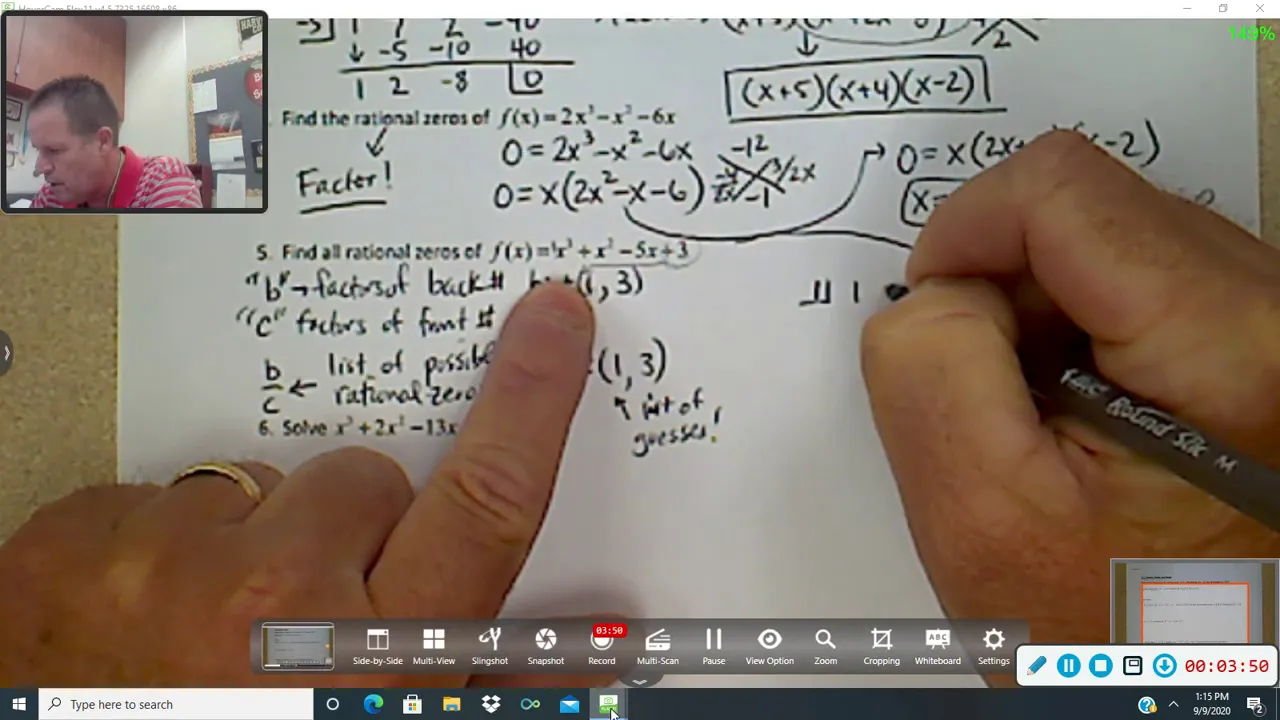 HoverCam Flex11 v4.5.7325.16608 x86
149%
1 2 -40
↓ -5 -10 40
1 2 -8 0
(x+5)(x+4)(x-2)
Find the rational zeros of f(x) = 2x³ - x² - 6x
Factor!
0 = 2x³ - x² - 6x
0 = x(2x² - x - 6)
-12
3/2x
-1
0 = x(2x
-2)
x=
5. Find all rational zeros of f(x) = 1x³ + x² - 5x + 3
"b" → factors of back #
(1, 3)
"c" factors of front #
b/c ← list of possible
rational zero
(1, 3)
↑ list of
guesses!
1 1
6. Solve x³ + 2x² - 13x
Paper Mate Round Stic M
Side-by-Side Multi-View Slingshot Snapshot Record Multi-Scan Pause View Option Zoom Cropping Whiteboard Settings
03:50
ABC
00:03:50
Type here to search
1:15 PM
9/9/2020
2